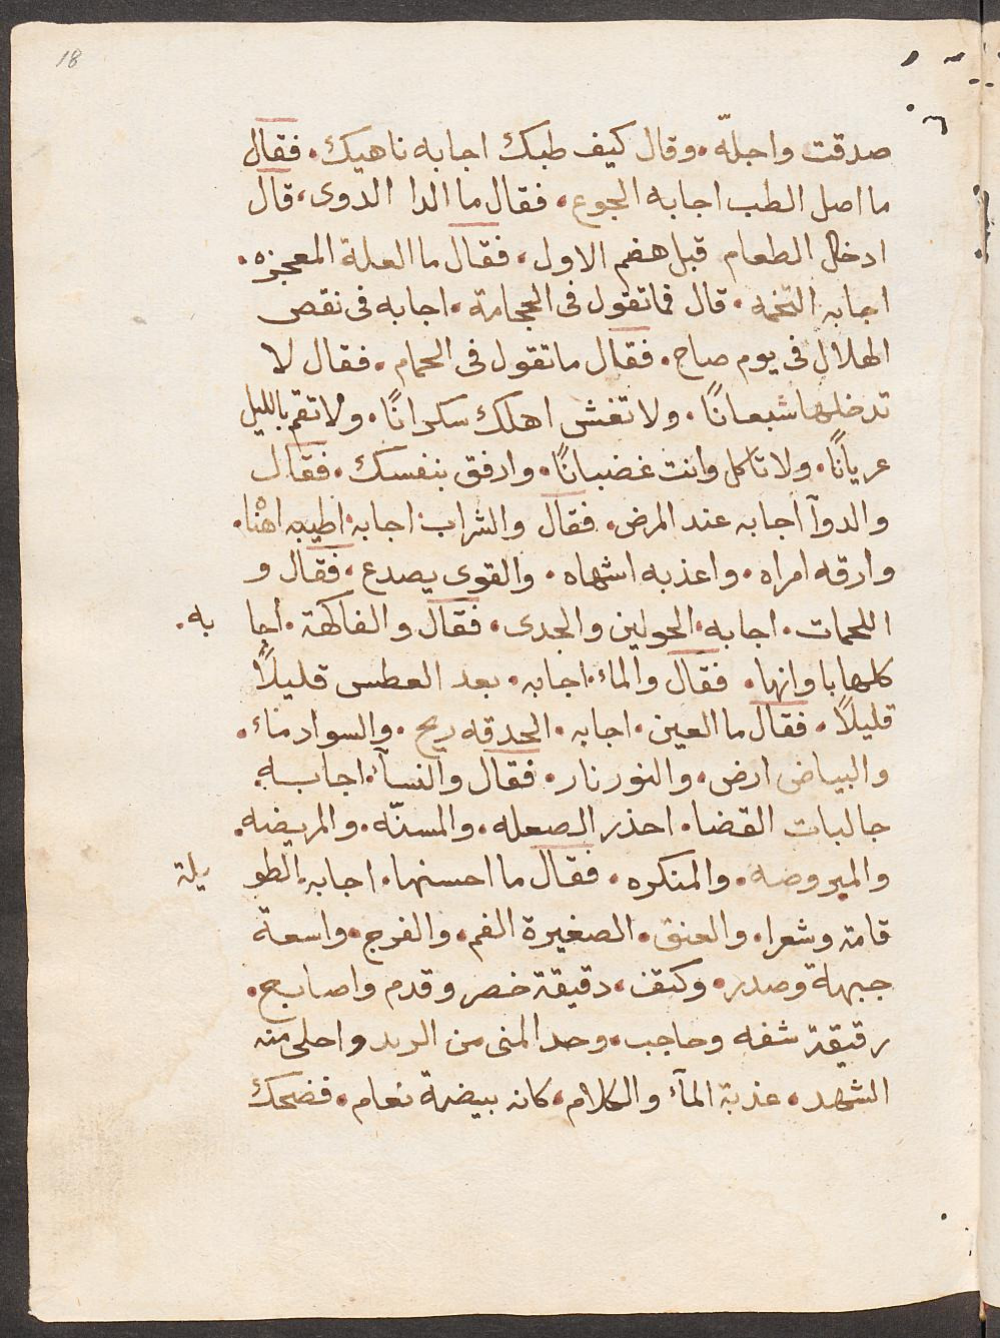 18
صدقت واجلّه. وقال كيف طبك اجابه ناهيك. فقال
ما اصل الطب اجابه الجوع. فقال ما الدا الدوى، قال
ادخال الطعام قبل هضم الاول. فقال ما العلة المعجزه.
اجابه التخمه. قال فما تقول فى الحجامة. اجابه فى نقص
الهلال فى يوم صاح. فقال ما تقول فى الحمام. فقال لا
تدخلها شبعانًا. ولا تغش اهلك سكرانًا. ولا تقم بالليل
عريانًا. ولا تاكل وانت غضبانًا. وارفق بنفسك. فقال
والدوآ اجابه عند المرض. فقال والشراب. اجابه. اطيبه اهنا.
وارقه امراه. واعذبه اشهاه. والقوى يصدع. فقال و
اللحمات. اجابه. الحولين والجدى. فقال والفاكهة. اجا به.
كلها باوانها. فقال والماء. اجابه. بعد العطس قليلًا
قليلًا. فقال ما العين. اجابه. الحدقه ريح. والسواد ماء.
والبياض ارض. والنور نار. فقال والنسآ. اجابه
جالبات القضا. احذر الصعله. والمسنّه. والمريضه.
والميروضه. والمنكره. فقال ما احسنها. اجابه. الطو يلة
قامة وشعرا. والعنق. الصغيرة الفم. والفرج. واسعة
جبهة وصدر. وكتف. دقيقة خصر وقدم واصابع.
رقيقة شفه وحاجب. وحد المنى من الربد واحلى منه
الشهد. عذبة المآء والكلام. كانه بيضة نعام. فضحك